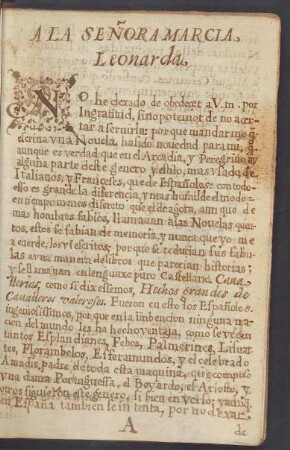 A LA SEÑORA MARCIA
Leonarda.
NO he dexado de obedecer a V.m. por
Ingratitud, sino por temor de no acer-
tar a servirla: porque mandarme q̃
escriva una Novela, ha sido novedad para mi, q̃
aunque es verdad que en el Arcadia, y Peregrino ay
alguna parte deste genero y estilo, mas usado de
Italianos, y Franceses, que de Españoles: con todo
esso es grande la diferencia, y mas humilde el modo:
en tiempo menos discreto que el de agora, aun que de
mas hombres sabios, llamavan a las Novelas quen-
tos, estos se sabian de memoria, y nunca que yo me
acuerde, los vi escritos; porque se reducian sus fabu-
las a una manera de libros que parecian historias;
y se llamavan en lenguaxe puro Castellano, Cava-
llerias, como si dixessemos, Hechos grandes de
Cavalleros valerosos. Fueron en esto los Españoles
ingeniosissimos, porque en la imbencion ninguna na-
cion del mundo les ha hecho ventaja, como se ve en
tantos Esplandianes, Febos, Palmerines, Lisuar-
tes, Florambelos, Esferamundos, y el celebrado
Amadis, padre de toda esta maquina, que compuso
una dama Portuguessa, el Boyardo, el Ariosto, y
otros siguieron este genero, si bien en verso; y aunq̃
en España tambien se intenta, por no dexar
A
de